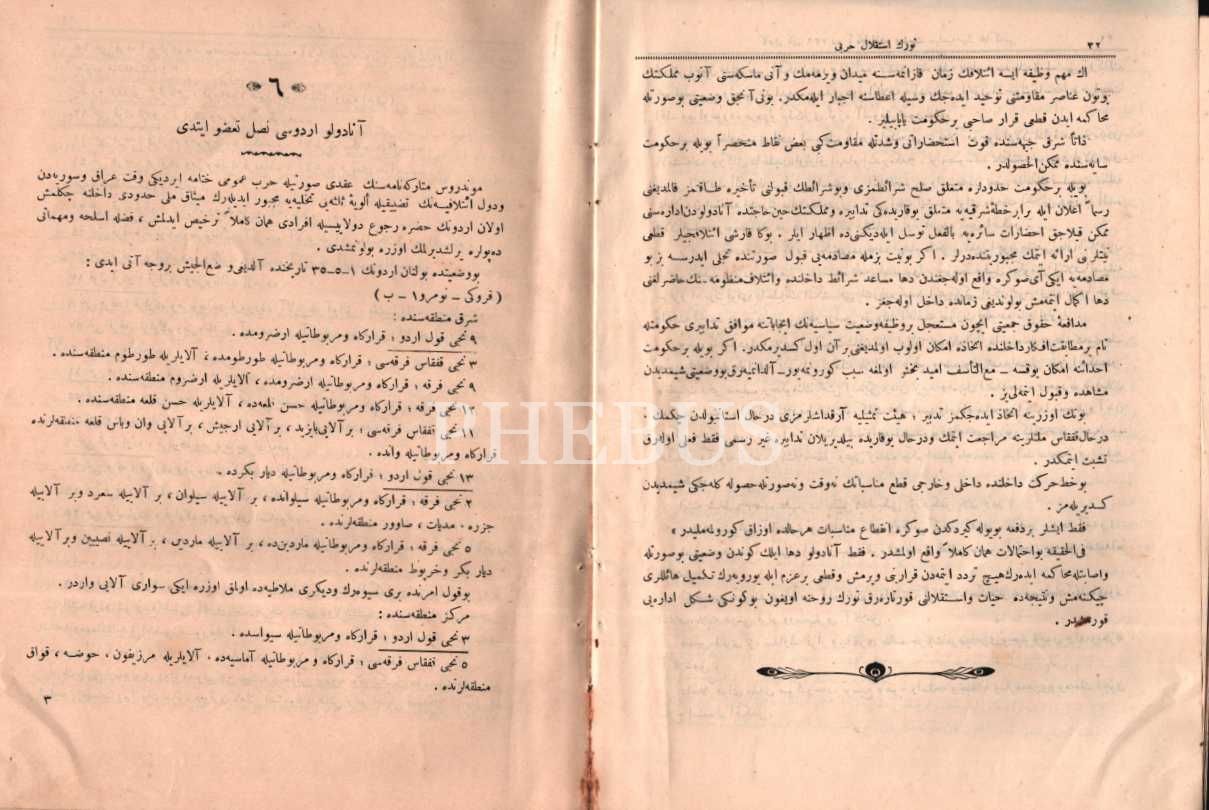 ٣٢
تورك استقلال حربی
اك مهم وظیفه ایسه ائتلافك زمان قازانمه‌سنه میدان ویرمه‌مك و آنی ماسكه‌سنی آتوب مملكتك
بوتون عناصر مقاومتنی توحید ایده‌جك وسیله اعطاسنه اجبار ایله‌مكدر. بونی آنجق وضعیتی بوصورتله
محاكمه ایدن قطعی قرار صاحبی برحكومت یاپابیلیر.
ذاتاً شرق جبهه‌سنده قوت استحضاراتی وشدتله مقاومت كبی بعض نقاط منحصراً بویله برحكومت
سایه‌سنده ممكن‌الحصولدر.
بویله برحكومت حدودلره متعلق صلح شرائطمزی وبوشرائطك قبولنی تأخیره طاقتمز قالمدیغنی
رسماً اعلان ایله برابر خطهٔ شرقیه‌یه متعلق یوقاریده‌كی تدابیره ومملكتك حین حاجتده آنادولودن اداره‌سنی
ممكن قیلاجق احضارات سائره‌یه بالفعل توسل ایله‌دیكنی‌ده اظهار ایلر. بوكا قارشی ائتلافجیلر قطعی
نیتلرینی ارائه ایتمك مجبوریتنده‌درلر. اكر بونیت بزمله مصادمه‌یی قبول صورتنده تجلی ایدرسه بز بو
مصادمه‌یه ایكی آی صوكره واقع اوله‌جغندن دها مساعد شرائط داخلنده وائتلاف منظومه‌سنك حاضرلغنی
دها اكمال ایتمه‌مش بولوندیغی زمانده داخل اوله‌جغز.
مدافعهٔ حقوق جمعیتی ایچون مستعجل بروظیفه وضعیت سیاسیه‌نك ایجاباتنه موافق تدابیری حكومتله
تام برمطابقت افكار داخلنده اتخاذه امكان اولوب اولمدیغنی بر آن اول كسدیرمكدر. اكر بویله برحكومت
احداثنه امكان یوقسه ـ مع‌التأسف امید بخش اولمغه سبب كورونمه‌یور ـ آلداتمیه‌رق بووضعیتی شیمدیدن
مشاهده وقبول ایتمه‌لی‌یز.
بونك اوزرینه اتخاذ ایده‌جكمز تدبیر؛ هیئت تمثیلیه آرقداشلرمزی درحال استانبولدن چكمك.
درحال قفقاس ملتلرینه مراجعت ایتمك ودرحال یوقاریده بیلدیریلان تدابیره غیر رسمی فقط فعلی اوله‌رق
تشبث ایتمكدر.
بوخط حركت داخلنده داخلی وخارجی قطع مناسباتك نه‌وقت ونه‌صورتله حصوله كله‌جكی شیمدیدن
كسدیریله‌مز.
فقط ایشلر بردفعه بویوله كیردكدن صوكره انقطاع مناسبات هرحالده اوزاق كورولمه‌ملیدر،
فی‌الحقیقه بواحتمالات همان كاملاً واقع اولمشدر. فقط آنادولو دها ایلك كوندن وضعیتی بوصورتله
واصابتله محاكمه ایده‌رك هیچ تردد ایتمه‌دن قرارینی ویرمش وقطعی برعزم ایله یورویه‌رك تكمیل هائللری
چیكنه‌مش ونتیجه‌ده حیات واستقلالنی قورتاره‌رق تورك روحنه اویغون بوكونكی شكل اداره‌یی
قورمشدر.
٦
آنادولو اردوسی نصل تعضو ایتدی
موندروس متاركه‌نامه‌سنك عقدی صورتیله حرب عمومی ختامه ایردیكی وقت عراق وسوریه‌دن
ودول ائتلافیه‌نك تضییقیله ألویهٔ ثلثه‌یی تخلیه‌یه مجبور ایدیله‌رك میثاق ملی حدودی داخلنه چكلمش
اولان اردونك حضره رجوع دولاییسیله افرادی همان كاملاً ترخیص ایدلمش، فضله اسلحه ومهماتی
ده‌پولره یرلشدیرلمك اوزره بولونمشدی.
بووضعیتده بولنان اردونك ١-٥-٣٥ تاریخنده آلدیغی وضع‌الجیش بروجه آتی ایدی:
(قروكی ـ نومرو ١ ـ ب)
شرق منطقه‌سنده:
٩ نجی قول اردو؛ قراركاه ومربوطاتیله ارضرومده.
٣ نجی قفقاس فرقه‌سی؛ قراركاه ومربوطاتیله طورطومده، آلایلریله طورطوم منطقه‌سنده.
٩ نجی فرقه؛ قراركاه ومربوطاتیله ارضرومده، آلایلریله ارضروم منطقه‌سنده.
١٢ نجی فرقه؛ قراركاه ومربوطاتیله حسن قلعه‌ده، آلایلریله حسن قلعه منطقه‌سنده.
١١ نجی قفقاس فرقه‌سی؛ برآلایی بایزید، برآلایی ارجیش، برآلایی وان وباش قلعه منطقه‌لرنده
قراركاه ومربوطاتیله وانده.
١٣ نجی قول اردو؛ قراركاه ومربوطاتیله دیار بكرده.
٢ نجی فرقه؛ قراركاه ومربوطاتیله سیلوانده، بر آلاییله سیلوان، بر آلاییله سعرد وبر آلاییله
جزره، مدیات، صاوور منطقه‌لرنده.
٥ نجی فرقه؛ قراركاه ومربوطاتیله ماردین‌ده، بر آلاییله ماردین، بر آلاییله نصیبین وبرآلاییله
دیار بكر وخربوط منطقه‌لرنده.
بوقول امرنده بری سیوه‌رك ودیكری ملاطیه‌ده اولمق اوزره ایكی سواری آلایی واردر.
مركز منطقه‌سنده:
٣ نجی قول اردو؛ قراركاه ومربوطاتیله سیواسده.
٥ نجی قفقاس فرقه‌سی؛ قراركاه ومربوطاتیله آماسیه‌ده. آلایلریله مرزیفون، حوضه، قواق
منطقه‌لرنده.
٣
PHEBUS